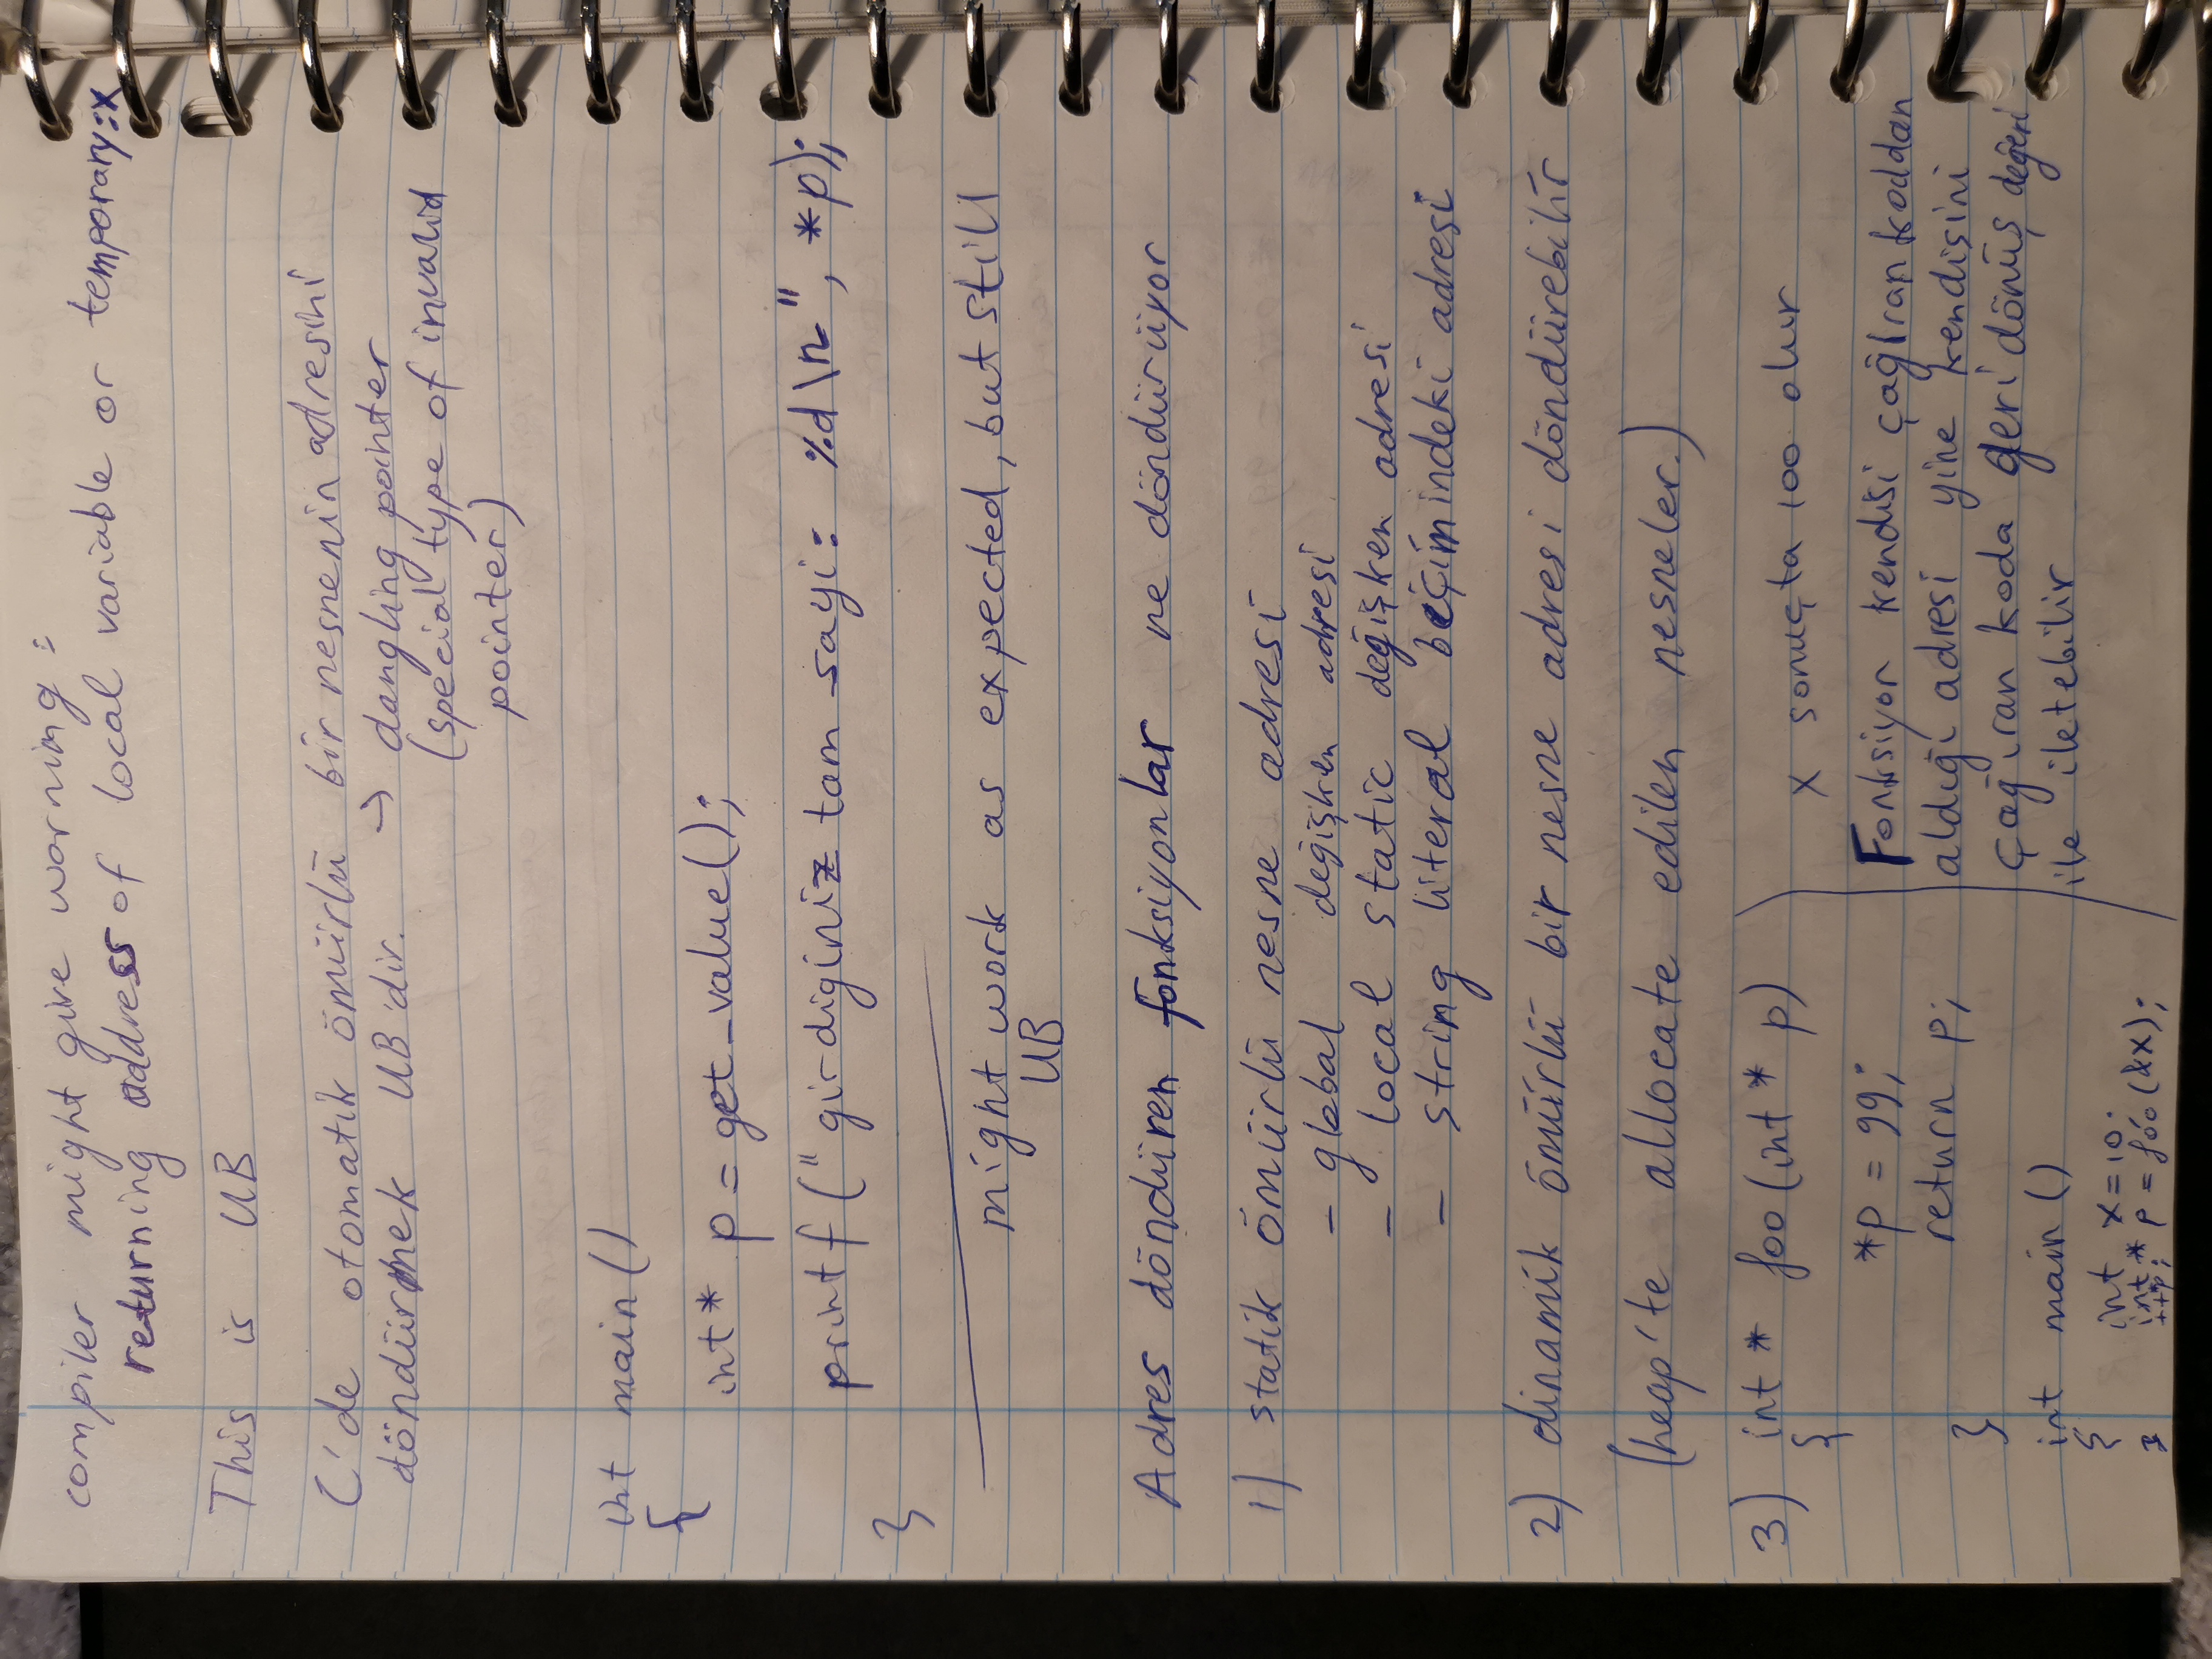 compiler might give warning:
returning address of local variable or temporary: x
This is UB
C'de otomatik ömürlü bir nesnenin adresini
döndürmek UB'dir. → dangling pointer
(special type of invalid
pointer)
int main()
{
int* p = get_value();
printf("girdiginiz tam sayi: %d\n", *p);
}
might work as expected, but still
UB
Adres döndüren fonksiyonlar ne döndürüyor
1) statik ömürlü nesne adresi
- global değişken adresi
- local static değişken adresi
- string literal biçimindeki adresi
2) dinamik ömürlü bir nesne adresi döndürebilir
(heap'te allocate edilen nesneler.)
3) int * foo(int * p)
{
*p = 99;
return p;
}
int main()
{
int x=10;
int* p = foo(&x);
++*p;
}
x sonuçta 100 olur
Fonksiyon kendisi çağıran koddan
aldığı adresi yine kendisini
çağıran koda geri dönüş değeri
ile iletebilir